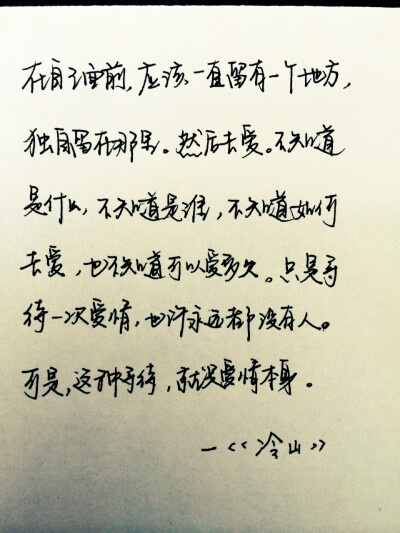 在自己面前,应该一直留有一个地方,
独自留在那里。然后去爱。不知道
是什么,不知道是谁,不知道如何
去爱,也不知道可以爱多久。只是等
待一次爱情,也许永远都没有人。
可是,这种等待,就是爱情本身。
—《冷山》